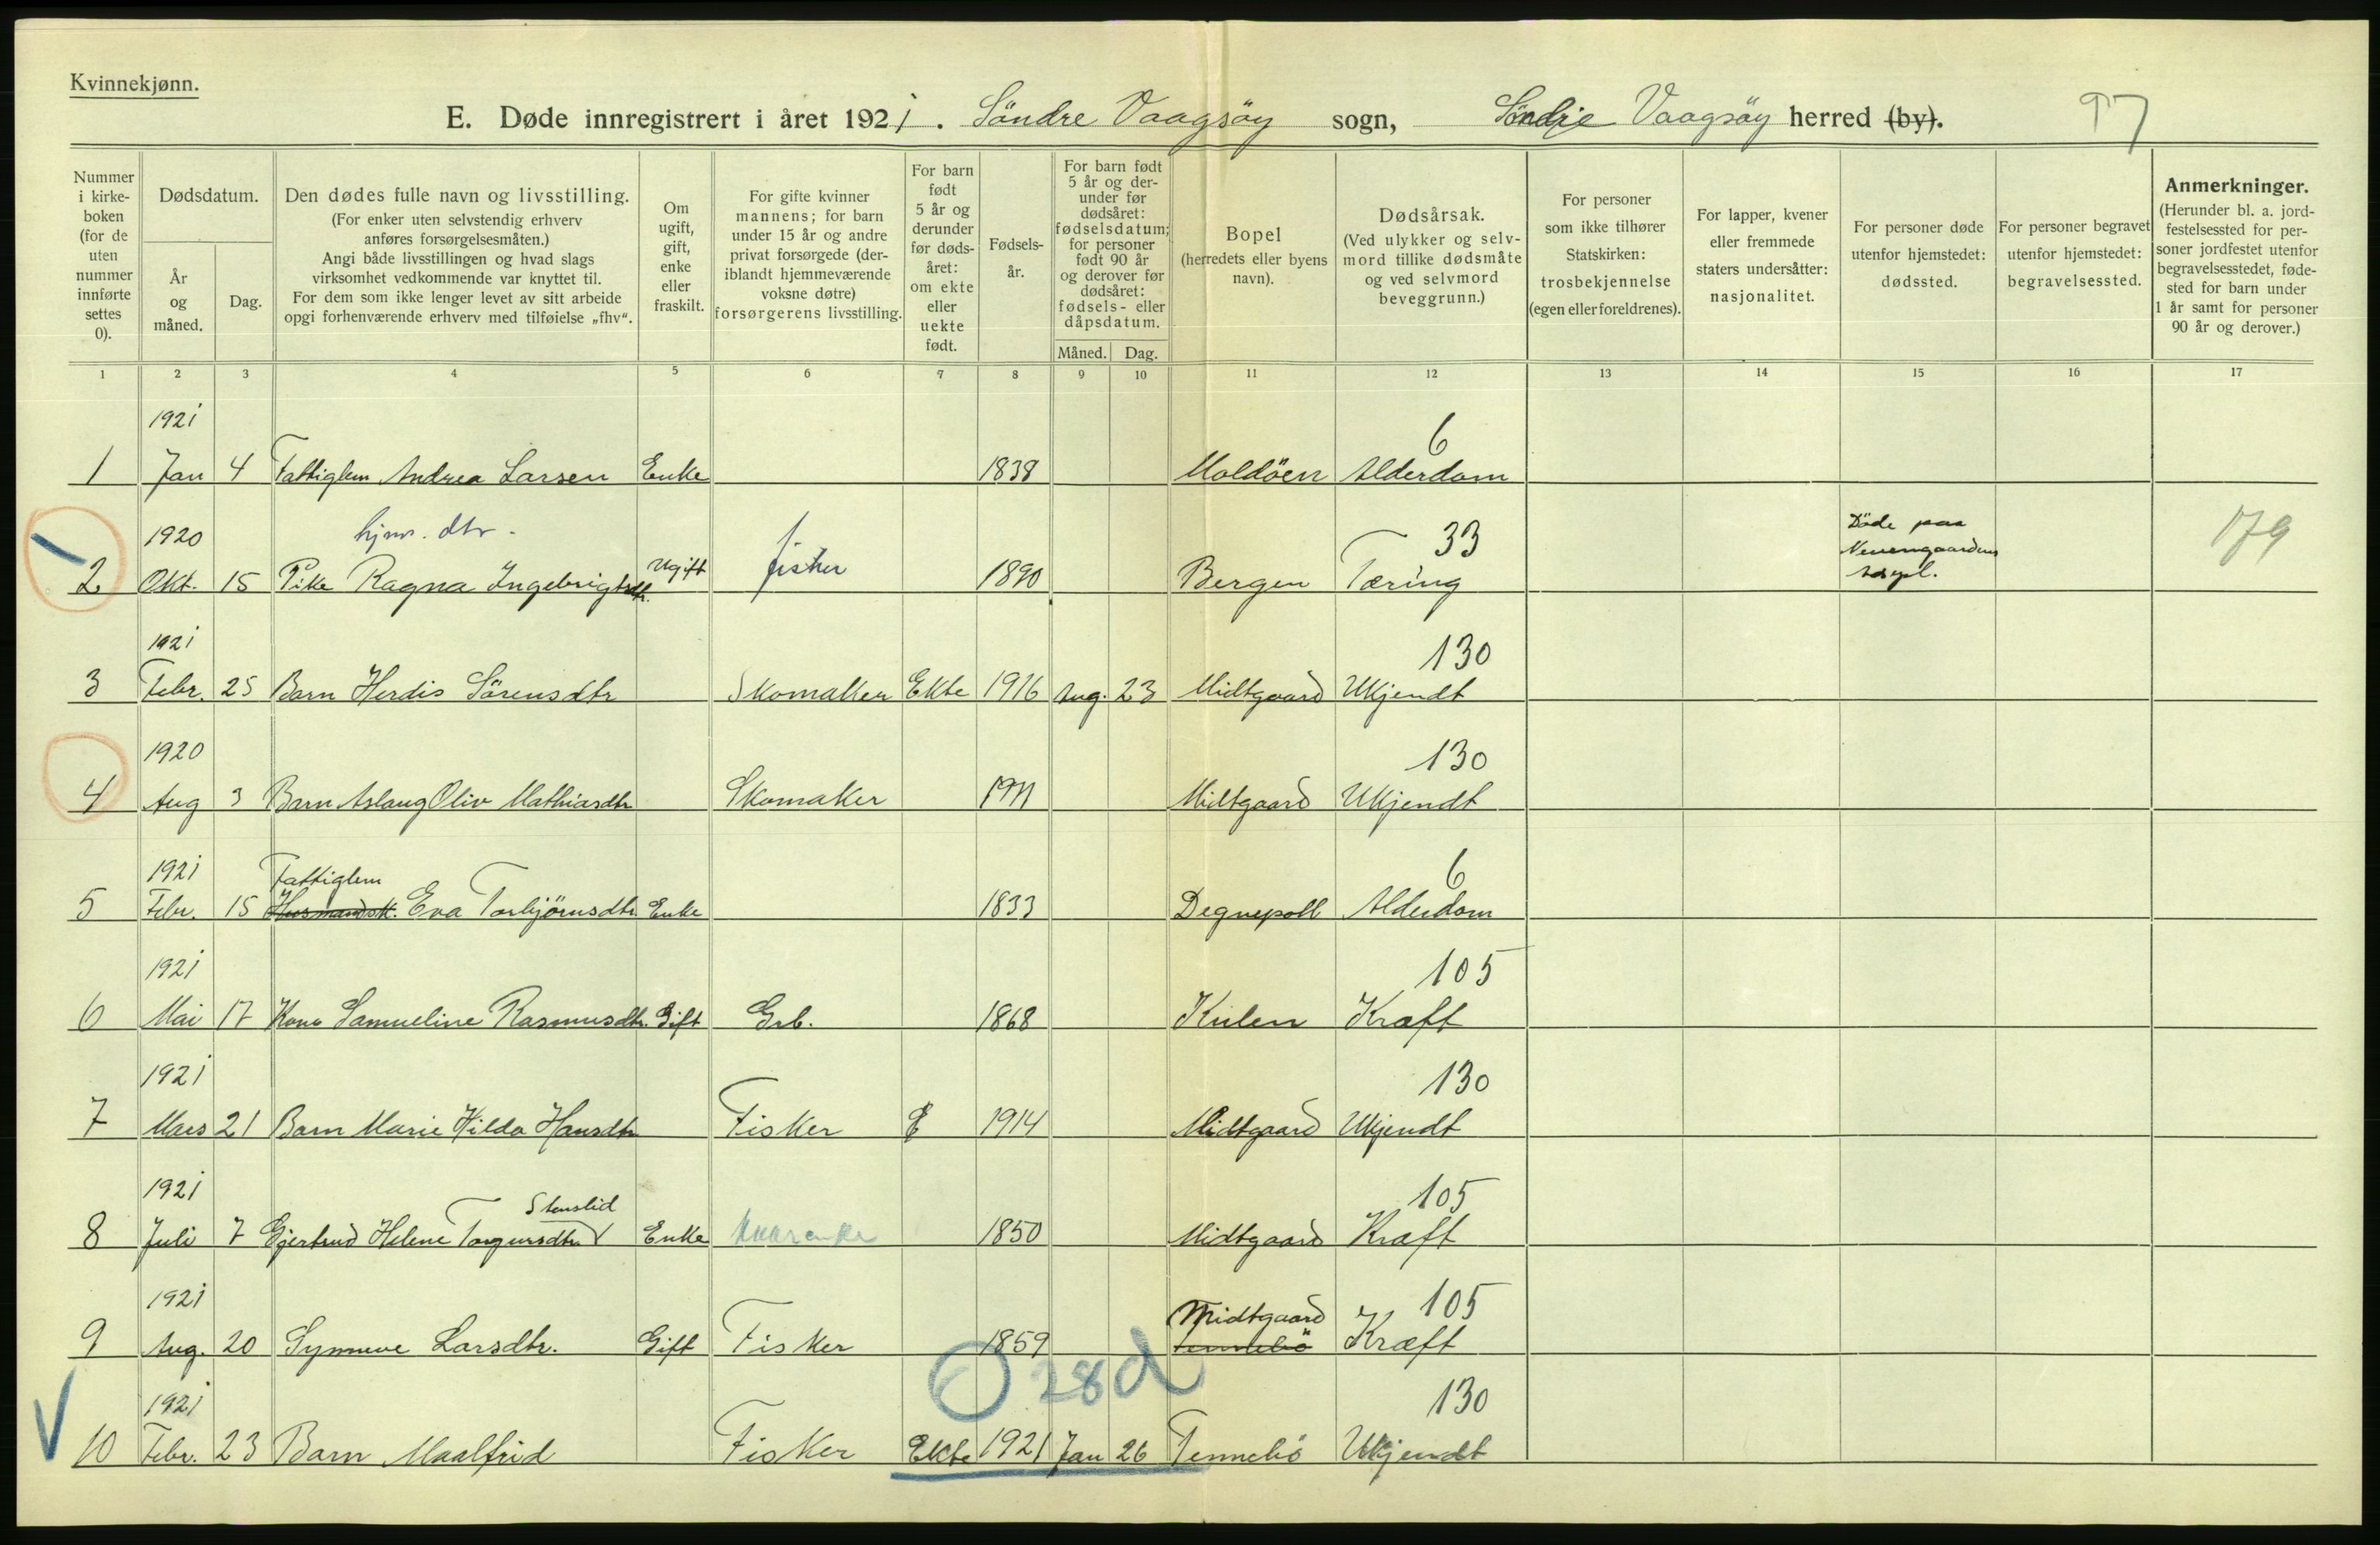 Kvinnekjønn.
E. Døde innregistrert i året 1921. Söndre Vaagsöy sogn, Söndre Vaagsöy herred (by).
Nummer i kirkeboken (for de uten nummer innførte settes 0).
Dødsdatum.
År og måned.
Dag.
Den dødes fulle navn og livsstilling.
(For enker uten selvstendig erhverv
anføres forsørgelsesmåten.)
Angi både livsstillingen og hvad slags
virksomhet vedkommende var knyttet til.
For dem som ikke lenger levet av sitt arbeide
opgi forhenværende erhverv med tilføielse „fhv“.
Om ugift, gift, enke eller fraskilt.
For gifte kvinner
mannens; for barn
under 15 år og andre
privat forsørgede (der-
iblandt hjemmeværende
voksne døtre)
forsørgerens livsstilling.
For barn født 5 år og derunder før dødsåret: om ekte eller uekte født.
Fødselsår.
For barn født 5 år og derunder før dødsåret: fødselsdatum; for personer født 90 år og derover før dødsåret: fødsels- eller dåpsdatum.
Måned. Dag.
Bopel
(herredets eller byens
navn).
Dødsårsak.
(Ved ulykker og selv-
mord tillike dødsmåte
og ved selvmord
beveggrunn.)
For personer
som ikke tilhører
Statskirken:
trosbekjennelse
(egen eller foreldrenes).
For lapper, kvener
eller fremmede
staters undersåtter:
nasjonalitet.
For personer døde
utenfor hjemstedet:
dødssted.
For personer begravet
utenfor hjemstedet:
begravelsessted.
Anmerkninger.
(Herunder bl. a. jord-
festelsessted for per-
soner jordfestet utenfor
begravelsesstedet, føde-
sted for barn under
1 år samt for personer
90 år og derover.)
1 2 3 4 5 6 7 8 9 10 11 12 13 14 15 16 17
1921 6
1 Jan 4 Fattiglem Andrea Larsen Enke 1838 Moldöen Alderdom
1920 hjmv. dtr. 33 Döde paa
2 Okt. 15 Pike Ragna Ingebrigtsdtr. Ugift fisker 1890 Bergen Tæring 179
1921 130
3 Febr. 25 Barn Herdis Sörensdtr Skomaker Ekte 1916 Aug. 23 Midtgaard Ukjendt
1920 130
4 Aug 3 Barn Aslaug Oliv Mathiasdtr Skomaker 1911 Midtgaard Ukjendt
1921 Fattiglem 6
5 Febr. 15 Husmandsk. Eva Torbjörnsdtr Enke 1833 Degnepoll Alderdom
1921 105
6 Mai 17 Kone Samueline Rasmusdtr. Gift Grb. 1868 Kulen Kræft
1921 130
7 Mars 21 Barn Marie Hilda Hansdtr Fisker E 1914 Midtgaard Ukjendt
1921 Stenslid 105
8 Juli 7 Gjertrud Helene Enke 1850 Midtgaard Kræft
1921 Midtgaard 105
9 Aug. 20 Synneve Larsdtr. Gift Fisker 1859 Tennebö Kræft
28 d
1921 130
10 Febr. 23 Barn Maalfrid Fisker Ekte 1921 Jan 26 Tennebö Ukjendt